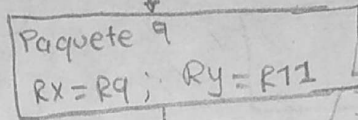 Paquete 9
RX=R9; Ry=R11